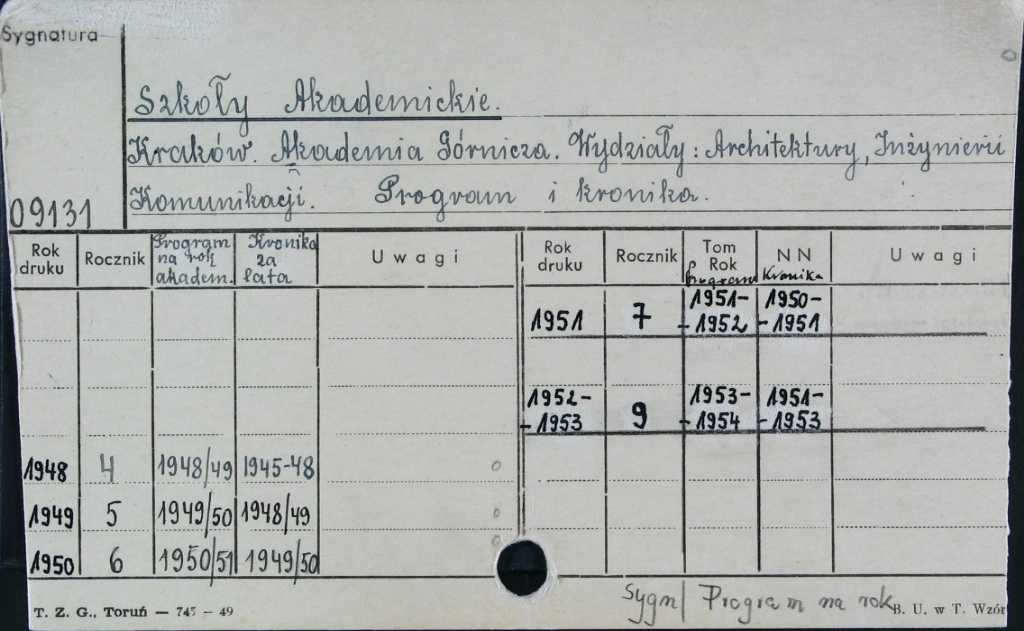 Sygnatura
Szkoły Akademickie.
Kraków. Akademia Górnicza. Wydziały: Architektury, Inżynierii
Komunikacji. Program i kronika.
09131
Rok druku Rocznik Program na rok akadem. Kronika za lata Uwagi
1948 4 1948/49 1945-48
1949 5 1949/50 1948/49
1950 6 1950/51 1949/50
Rok druku Rocznik Tom Rok Program NN Kronika Uwagi
1951 7 1951-
-1952 1950-
-1951
1952-
-1953 9 1953-
-1954 1951-
-1953
Sygn/ Program na rok
T. Z. G., Toruń — 745 - 49
B. U. w T. Wzór